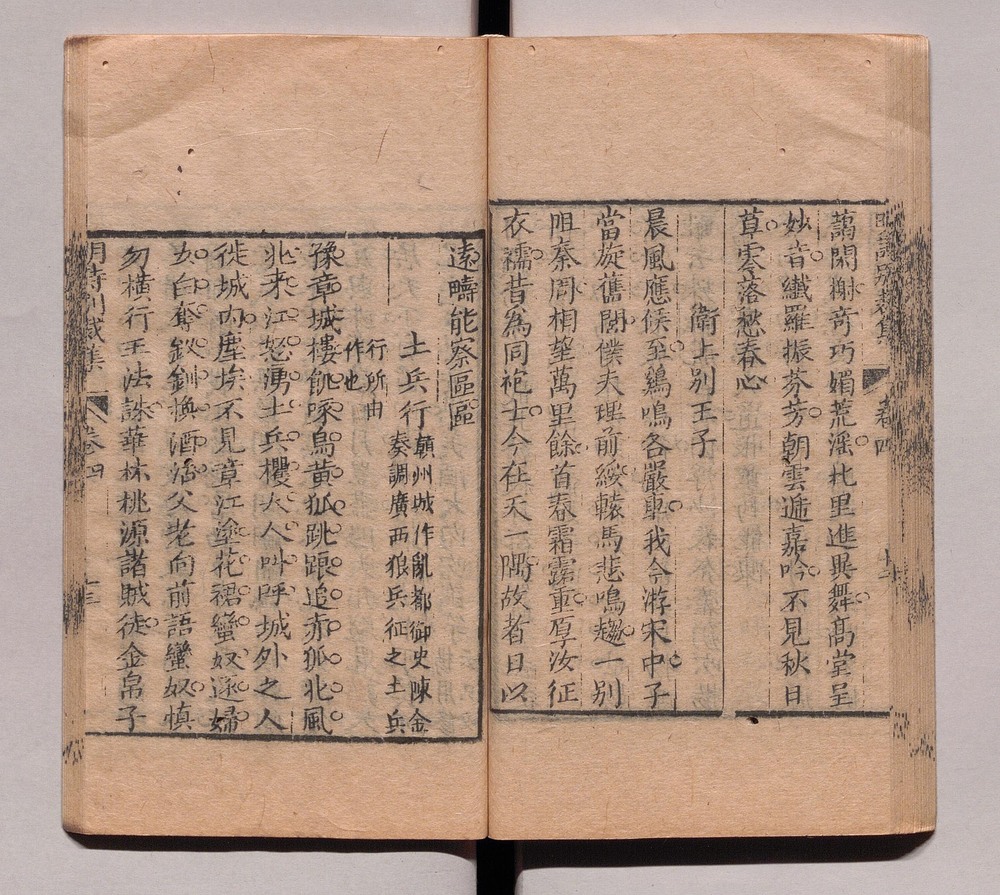 卷四
藹閑榭奇巧媚荒滛北里進與舞髙堂呈
妙音纖羅振芬芳朝雲遞嘉吟不見秋日
草零落愁春心
衛上別王子
晨風應候至鷄鳴各嚴車我今游宋中子
當旋舊閭僕夫理前綏轅馬悲鳴趨一別
阻秦周相望萬里餘首春霜露重厚汝征
衣襦昔為同袍士今在天一隅故者日以
遠疇能察區區
土兵行 贛州城作亂都御史陳金
奏調廣西狼兵征之土兵
行所由
作也
豫章城樓飢啄烏黃狐跳踉追赤狐北風
北来江怒湧土兵攫人人叫呼城外之人
徙城內塵埃不見章江途花裙蠻奴逐婦
女白奪釵釧換酒沽父老向前語蠻奴慎
勿橫行王法誅華林桃源諸賊徒金帛子
明詩別裁集 卷四 十三